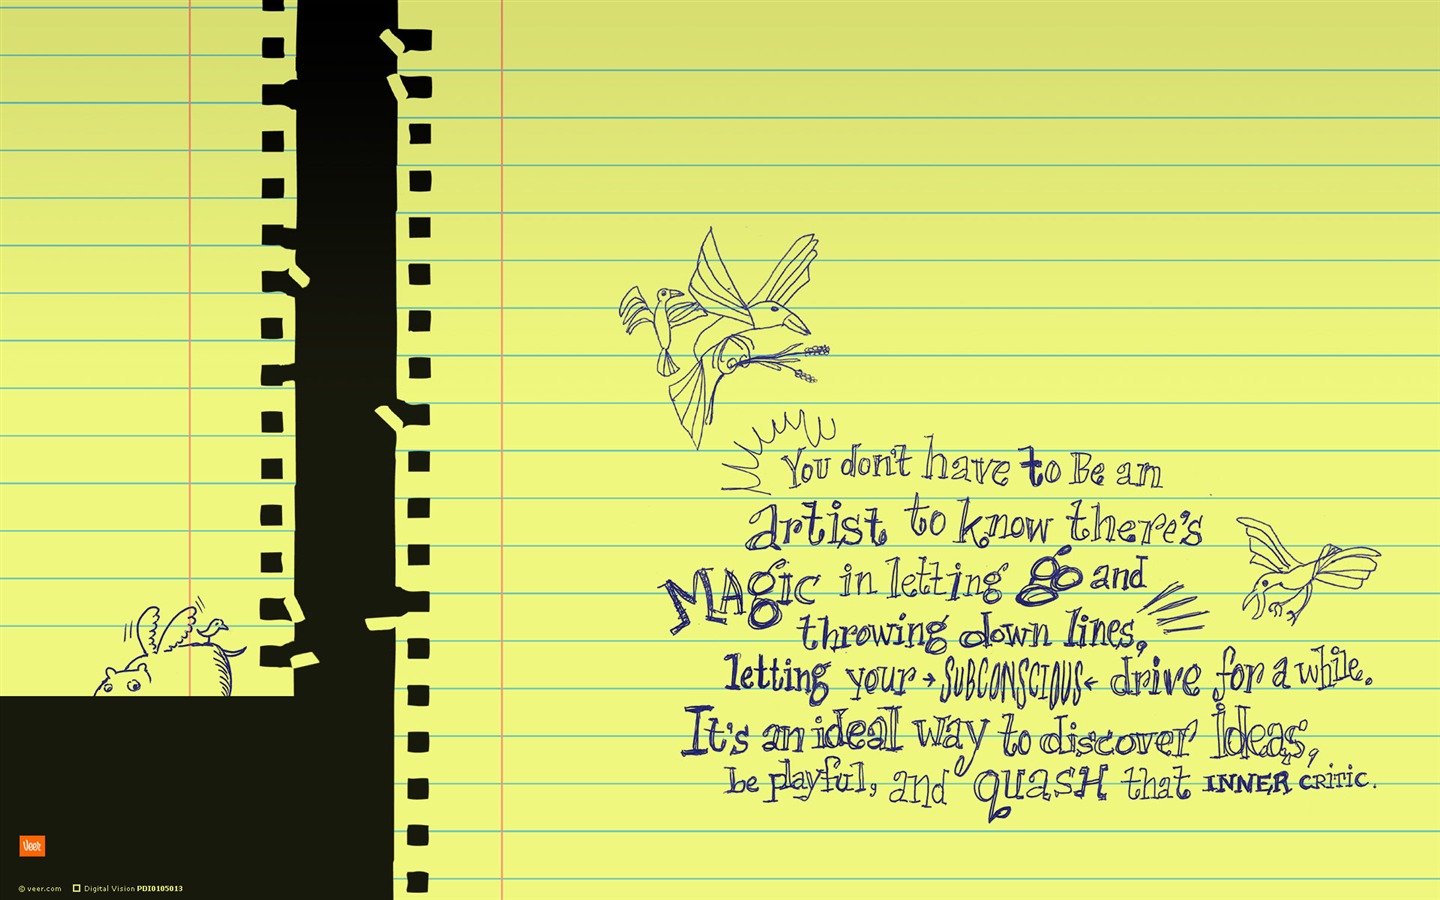 You don't have to Be an
artist to know there's
MAgic in letting go and
throwing down lines,
letting your → SUBCONSCIOUS ← drive for a while.
It's an ideal way to discover Ideas,
be playful, and quasH that INNER CRitic.
Veer
© veer.com Digital Vision PDI0105013